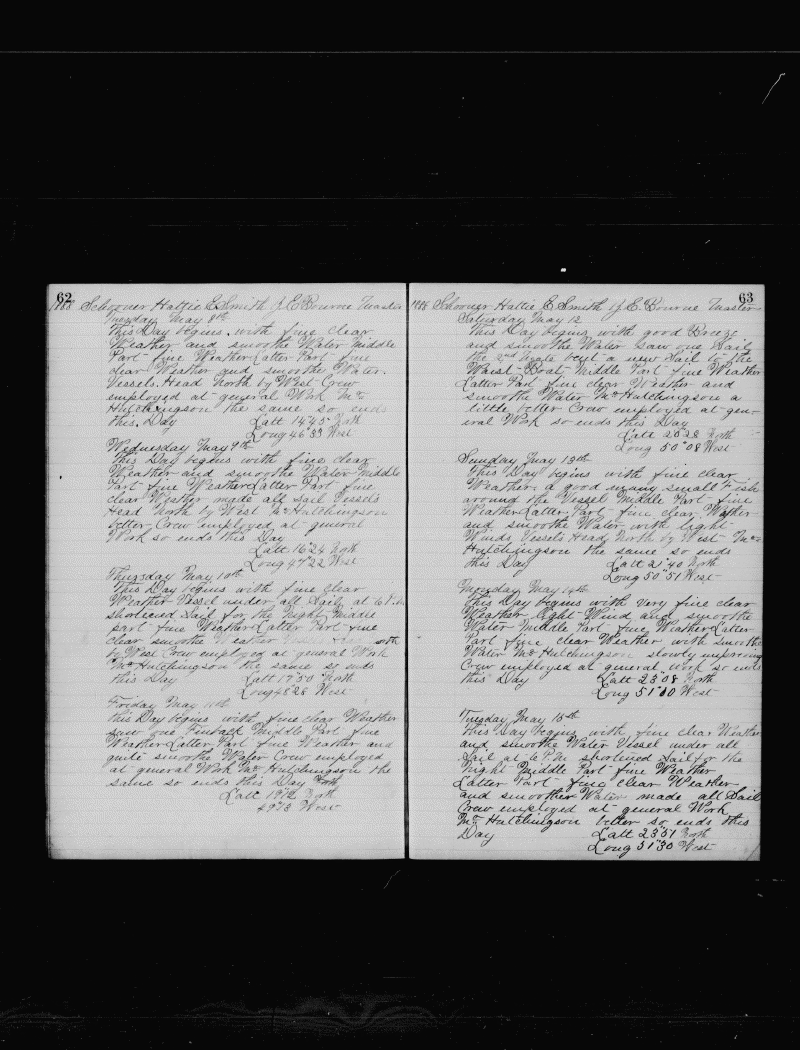 62
1888 Schooner Hattie E Smith J. E Bourne Master
Tuesday May 8th
This Day begins with fine clear
Weather and smoothe Water Middle
Part fine Weather Latter Part fine
clear Weather and smoothe Water.
Vessels Head North by West Crew
employed at general Work Mr
Hutchingson the same so ends
this Day Latt 14°45 North
Long 46°33 West
Wednesday May 9th
This Day begins with fine clear
Weather and smoothe Water Middle
Part fine Weather Latter Part fine
clear Weather made all sail Vessels
Head North by West Mr Hutchingson
better Crew employed at general
Work so ends this Day
Latt 16°24 North
Long 47°22 West
Thursday May 10th
This Day begins with fine clear
Weather Vessel under all Sail at 6 P.M
shortened Sail for the Night Middle
part fine Weather Latter Part fine
clear smoothe North
by West Crew employed at general Work
Mr Hutchingson the same so ends
this Day Latt 17°50 North
Long 48°28 West
Friday May 11th
this Day begins with fine clear Weather
saw one Finback Middle Part fine
Weather Latter Part fine Weather and
quite smoothe Water Crew employed
at general Work Mr Hutchingson the
same so ends this Day
Latt 19°12 North
49°13 West
63
1888 Schooner Hattie E Smith J. E. Bourne Master
Saturday May 12
This Day begins with good Breeze
and smoothe Water Saw one Sail
the 2nd Mate bent a new Sail to the
Waist-Boat, Middle Part fine Weather
Latter Part fine clear Weather and
smoothe Water Mr Hutchingson a
little better Crew employed at gen-
eral Work so ends this Day
Latt 20°28 North
Long 50°08 West
Sunday May 13th
This Day begins with fine clear
Weather, a good many small Fish
around the Vessel Middle Part fine
Weather Latter Part fine clear Weather
and smoothe Water with light
Winds Vessels Head North by West Mr
Hutchingson the same so ends
this Day Latt 21°40 North
Long 50°51 West
Monday May 14th
This Day begins with very fine clear
Weather light Wind and smoothe
Water Middle Part fine Weather Latter
Part fine clear Weather with smoothe
Water Mr Hutchingson slowly improving
Crew employed at general work so ends
this Day Latt 23°08 North
Long 51°10 West
Tuesday May 15th
This Day begins with fine clear Weather
and smoothe Water Vessel under all
Sail at 6 P.M shortened Sail for the
Night Middle Part fine Weather
Latter Part fine clear Weather
and smoother Water made all Sail
Crew employed at general Work
Mr Hutchingson better so ends this
Day Latt 23°51 North
Long 51°30 West